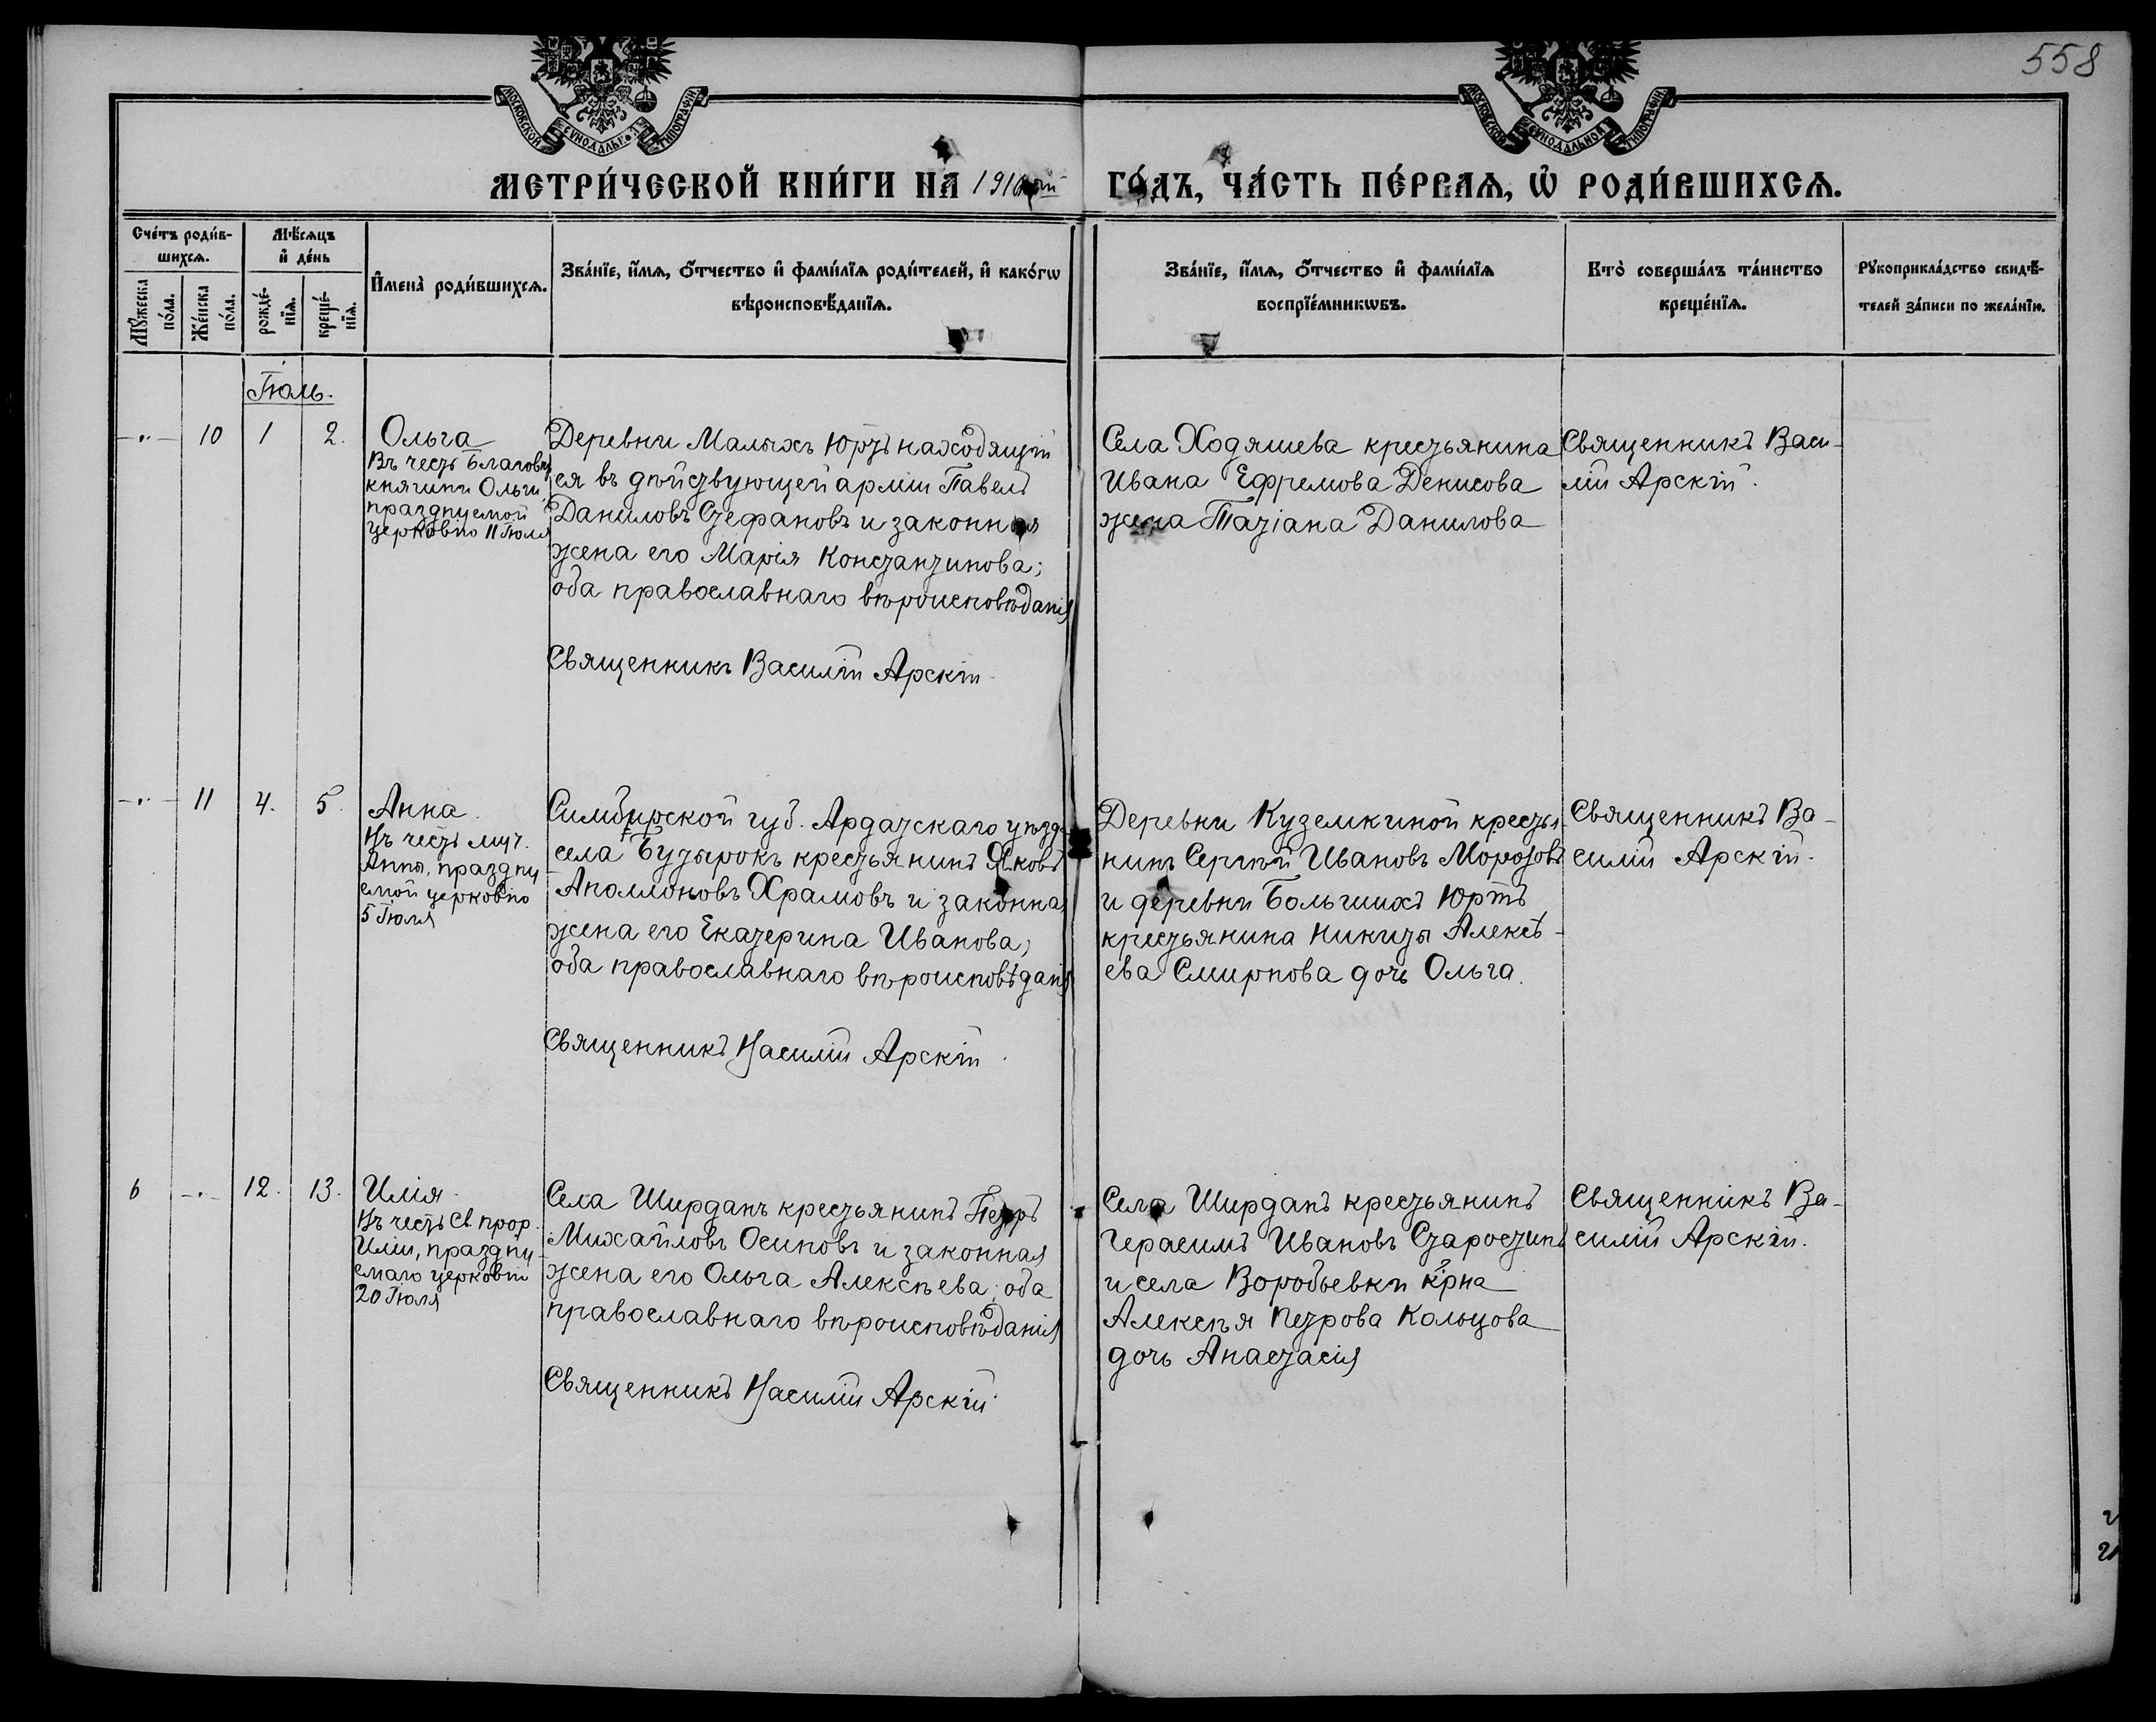 558
МОСКОВСКОЙ СѴНОДАЛЬНОЙ ТИПОГРАФІИ
МОСКОВСКОЙ СѴНОДАЛЬНОЙ ТИПОГРАФІИ
МЕТРИ́ЧЕСКОЙ КНИ́ГИ НА 1916ый ГО́ДЪ, ЧА́СТЬ ПЕ́РВАѦ, Ѡ҆ РОДИ́ВШИХСѦ.
Сче́тъ роди́в-
шихсѧ.
Мꙋ́жеска
по́ла.
Же́нска
по́ла.
Мѣ́сѧцъ
и҆ де́нь
рожде́-
нїѧ.
креще́-
нїѧ.
И҆мена̀ роди́вшихсѧ.
Зва́нїе, и҆́мѧ, ѻ҆́тчество и҆ фами́лїѧ роди́телей, и҆ како́гѡ
вѣроисповѣ́данїѧ.
Зва́нїе, и҆́мѧ, ѻ҆́тчество и҆ фами́лїѧ
воспрїе́мникѡвъ.
Кто̀ соверша́лъ та́инство
креще́нїѧ.
Рꙋкоприкла́дство свидѣ́-
телей за́писи по жела́нїю.
Іюль.
-"- 10 1 2.
Ольга
Въ честь Благовѣр
княгини Ольги,
празднуемой
церковію 11 Іюля
Деревни Малыхъ Юртъ находящій
ся въ дѣйствующей арміи Павелъ
Даниловъ Стефановъ и законная
жена его Марія Константинова;
оба православнаго вѣроисповѣданія
Священникъ Василій Арскій
Села Ходяшева крестьянина
Ивана Ефремова Денисова
жена Татіана Данилова
Священникъ Васи-
лій Арскій.
-"- 11 4. 5.
Анна.
Въ честь муч.
Анны, праздну
емой церковію
5 Іюля
Симбирской губ. Ардатскаго уѣзда
села Бутырокъ крестьянинъ Яковъ
Аполлоновъ Храмовъ и законная
жена его Екатерина Иванова;
оба православнаго вѣроисповѣданія
Священникъ Василій Арскій.
Деревни Куземкиной крестья-
нинъ Сергѣй Ивановъ Морозовъ
и деревни Большихъ Юртъ
крестьянина Никиты Алексѣ-
ева Смирнова дочь Ольга.
Священникъ Ва-
силій Арскій.
6 -"- 12. 13.
Илія.
Въ честь Св. прор.
Иліи, праздну-
емаго церковію
20 Іюля
Села Ширданъ крестьянинъ Петръ
Михайловъ Осиповъ и законная
жена его Ольга Алексѣева; оба
православнаго вѣроисповѣданія
Священникъ Василій Арскій.
Села Ширданъ крестьянинъ
Герасимъ Ивановъ Старостинъ
и села Воробьевки кр̃на
Алексѣя Петрова Кольцова
дочь Анастасія
Священникъ Ва-
силій Арскій.